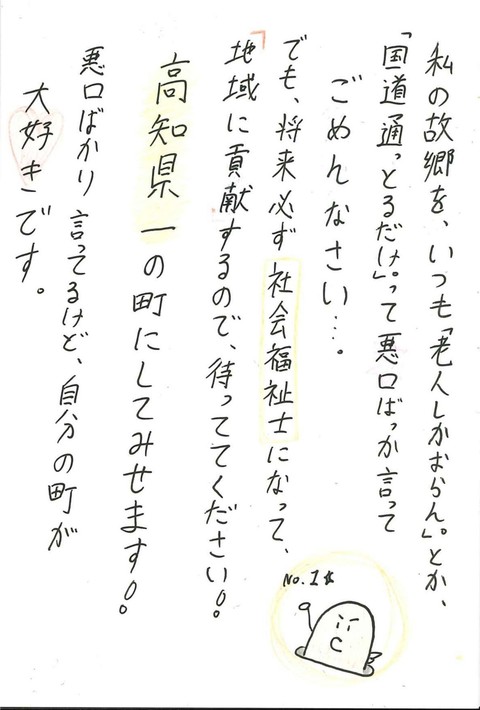 私の故郷を、いつも「老人しかおらん。」とか、
「国道通っとるだけ。」って悪口ばっか言って
ごめんなさい…。
でも、将来必ず社会福祉士になって、
地域に貢献するので、待っててください!。
高知県一の町にしてみせます!。
悪口ばかり言ってるけど、自分の町が
大好きです。
No.1